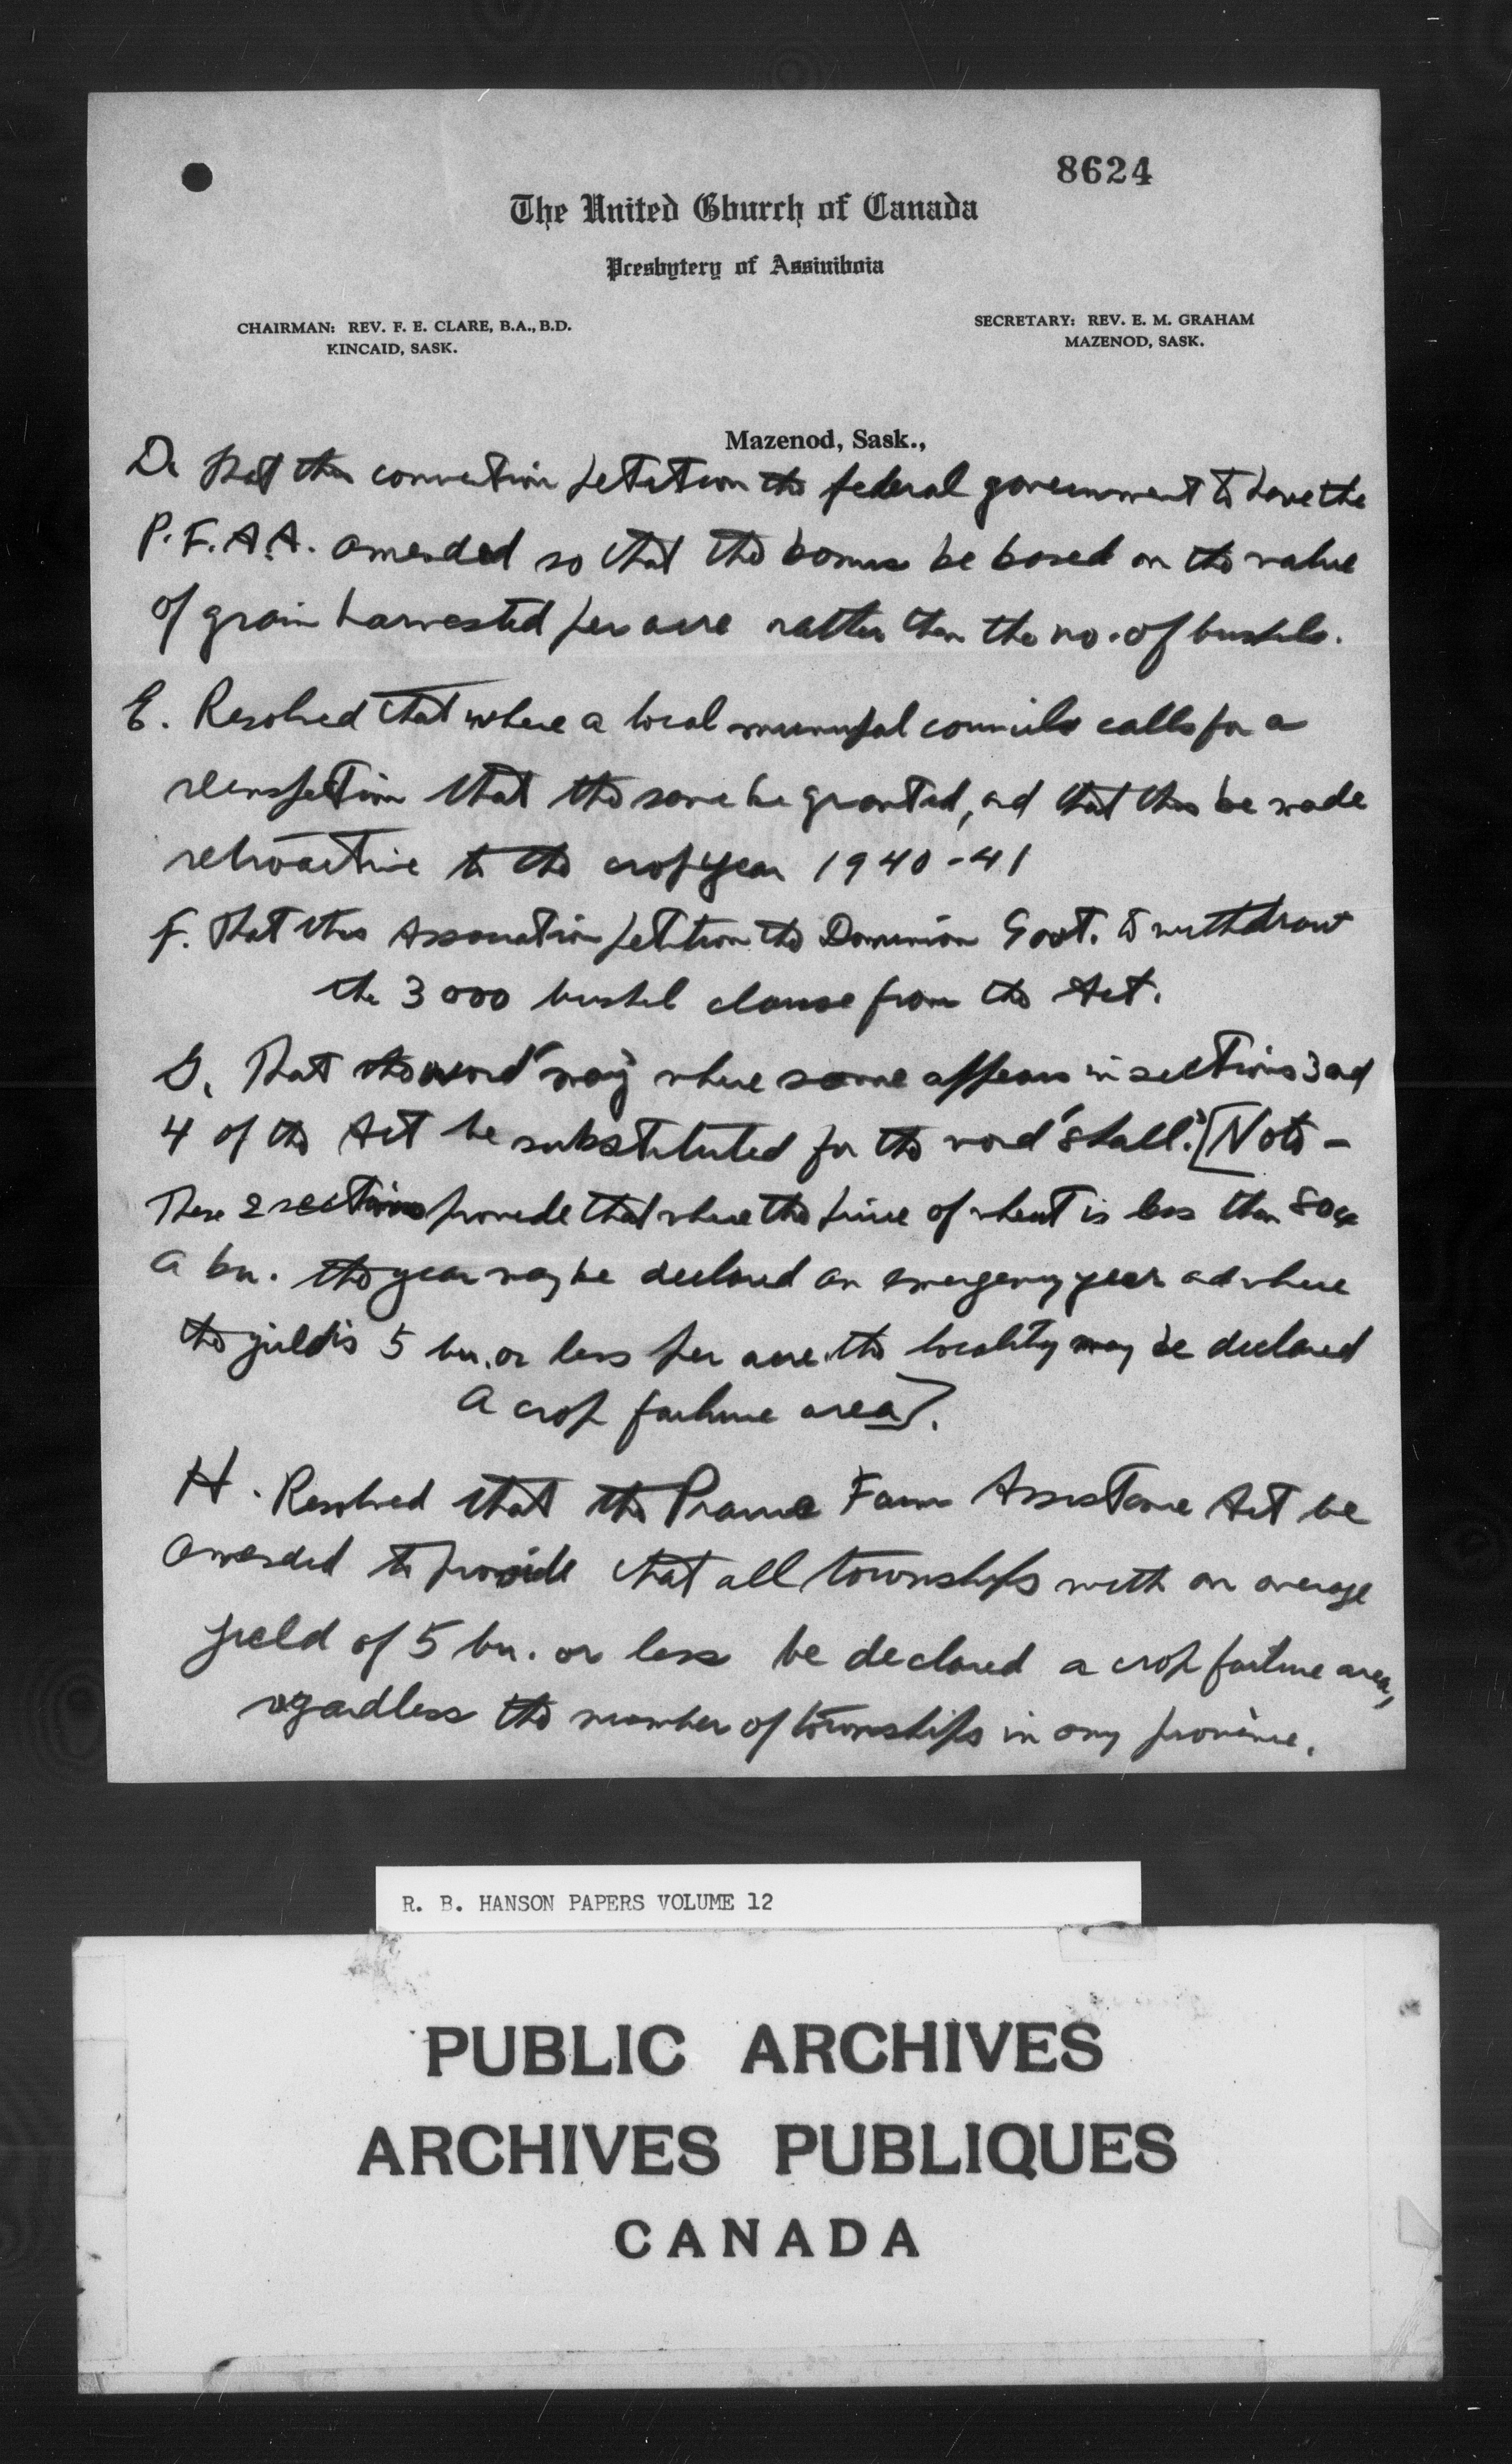 8624
The United Church of Canada
Presbytery of Assiniboia
CHAIRMAN: REV. F. E. CLARE, B.A., B.D.
KINCAID, SASK.
SECRETARY: REV. E. M. GRAHAM
MAZENOD, SASK.
Mazenod, Sask.,
D. That this convention petition the federal government to have the
P.F.A.A. amended so that the bonus be based on the value
of grain harvested per acre rather than the no. of bushels.
E. Resolved that where a local municipal councils calls for a
reinspection that the same be granted, and that this be made
retroactive to the crop year 1940-41
F. That this Association petition the Dominion Govt. to withdraw
the 3000 bushel clause from the Act.
G. That the word "may" where same appears in sections 3 and
4 of the Act be substituted for the word "shall". [Note -
These 2 sections provide that where the price of wheat is less than 80¢
a bu. the year may be declared an emergency year and where
the yield is 5 bu. or less per acre the locality may be declared
a crop failure area].
H. Resolved that the Prairie Farm Assistance Act be
amended to provide that all townships with an average
yield of 5 bu. or less be declared a crop failure area,
regardless the number of townships in any province.
R. B. HANSON PAPERS VOLUME 12
PUBLIC ARCHIVES
ARCHIVES PUBLIQUES
CANADA